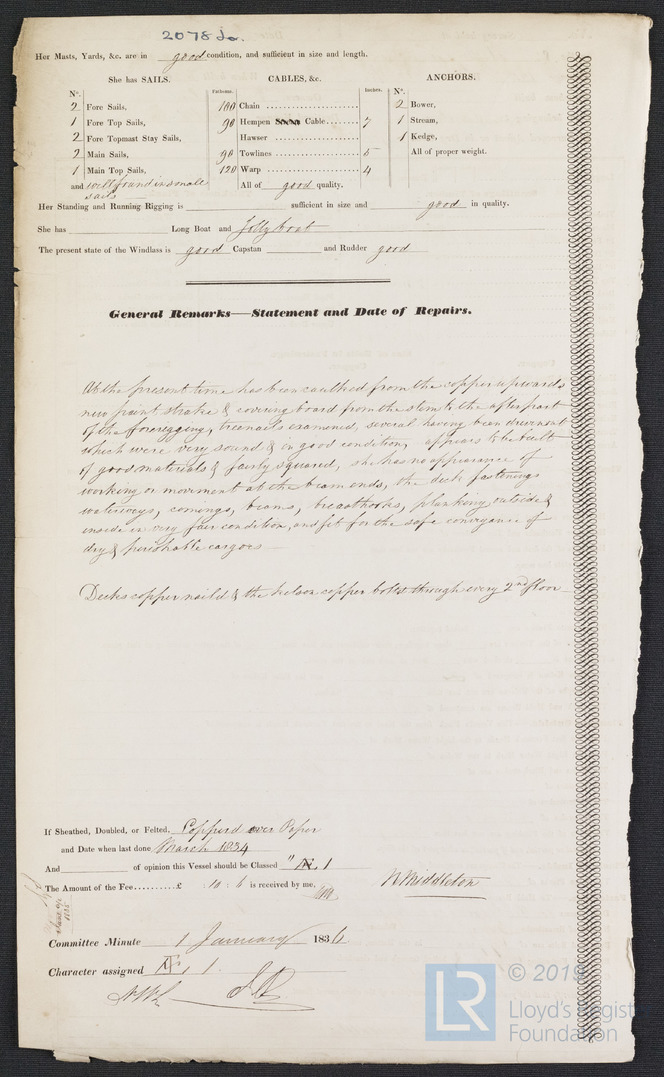 2078 Lo.
Her Masts, Yards, &c. are in good condition, and sufficient in size and length.
She has SAILS. CABLES, &c. ANCHORS.
No. Fathoms. Inches. No.
2 Fore Sails, 100 Chain 2 Bower,
1 Fore Top Sails, 90 Hempen Cable 7 1 Stream,
2 Fore Topmast Stay Sails, Hawser 1 Kedge,
2 Main Sails, 90 Towlines 5 All of proper weight.
1 Main Top Sails, 120 Warp 4
and well found in small sails All of good quality.
Her Standing and Running Rigging is sufficient in size and good in quality.
She has Long Boat and Jolly boat
The present state of the Windlass is good Capstan and Rudder good
General Remarks—Statement and Date of Repairs.
At the present time has been caulked from the copper upwards
new paint strake & covering board from the stem to the after part
of the foreregging, treenails examined, several having been drevnout
which were very sound & in good condition, appears to be built
of good materials & fairly squared, she has no appearance of
working or movement at the beam ends, the deck fastenings
waterways, comings, beams, breasthooks, planking outside &
inside in very fair condition, and fit for the safe conveyance of
dry & perishable cargoes
Decks copper naild & the kelson copper bolts through every 2nd floor
If Sheathed, Doubled, or Felted, Copperd over Paper
and Date when last done March 1834
And of opinion this Vessel should be Classed " Æ 1
The Amount of the Fee..........£ : 10 : 6 is received by me,
W Middleton
Committee Minute 1 January 1836
Character assigned Æ 1
LR
© 2019
Lloyd's Register
Foundation